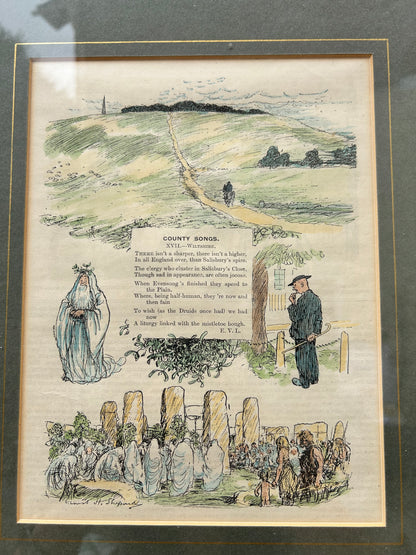 COUNTY SONGS.
XVII.—WILTSHIRE.
THERE isn't a sharper, there isn't a higher,
In all England over, than Salisbury's spire.
The clergy who cluster in Salisbury's Close,
Though sad in appearance, are often jocose.
When Evensong's finished they speed to
the Plain,
Where, being half-human, they're now and
then fain
To wish (as the Druids once had) we had
now
A liturgy linked with the mistletoe bough.
E. V. L.
Ernest H. Shepard